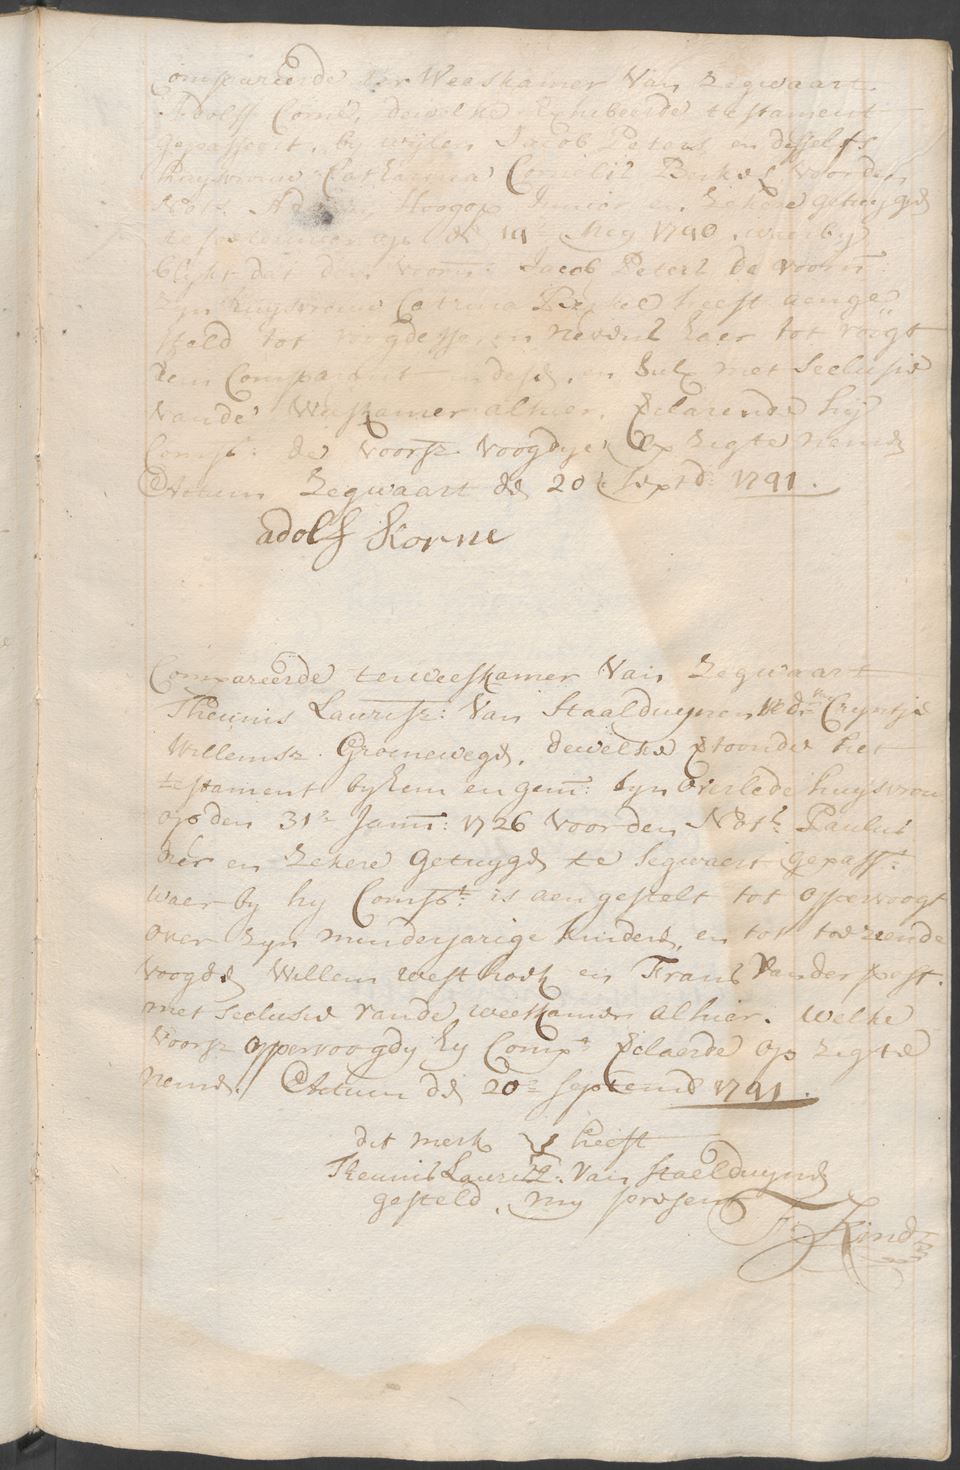 Compareerde ter Weeskamer Van Zegwaart
Adolf Corne, dewelke Exhibeerde testament
gepasseert, by wijlen Jacob Peters en desselfs
huysvrouw Catharina Cornelis Berkel, voorden
Nots. Hoogop Junior en Zekere getuyge
op de 19e Mey 1740, waerby
blykt dat den voorn: Jacob Peters de voorn:
zyn huysvrouw Catrina Berkel heeft aenge
steld tot voogdesse, en nevens haer tot voogt
den Comparant indese, en Sulx met Seclusie
vande Weeskamer alhier, Eclarende hij
Compt: de voorsz voogdye op Zigte neme
Actum Zegwaart de 20e Septd: 1741.
adolf Korne
Compareerde terweeskamer Van Zegwaart
Theunis Laurisz: Van Staalduynen Wedr. van Cryntje
Willemsz Groenewege, dewelke Etoonde het
testament by hem en gem: syn overlede huysvrou
op den 31e Jann: 1726 voorden Nots: Paulus
oer en Zekere Getuyge te Segwaert gepasst:
waer by hy Compt: is aengestelt tot oppervoogt
over Zyn minderjarige kinders, en tot toeziende
voogde Willem westhoek en Frans Vander post.
met Seclusie vande weeskamer alhier. Welke
Voorsz oppervoogdy hy Compt Eclaerde op Zigte
neme./ Actum de 20e septemb 1741.
dit merk heeft
Theunis Laurisz: Van Staelduyne
gesteld, my present
Kind